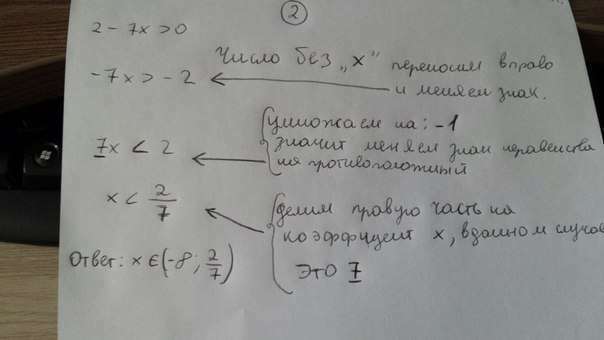 2
2 - 7x > 0
-7x > - 2
Число без „x" переносим вправо
и меняем знак.
7x < 2
Умножаем на: -1
значит меняем знак неравенства
на противоположный
x < 2/7
делим правую часть на
коэффициент x, в данном случае
это 7
Ответ: x ∈ (-8 ; 2/7)